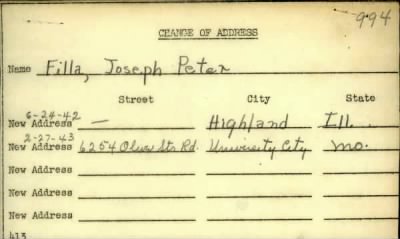 994
CHANGE OF ADDRESS
Name Filla, Joseph Peter
Street City State
6-24-42
New Address — Highland Ill.
2-27-43
New Address 6254 Olive Str. Rd. University City Mo.
New Address
New Address
New Address
413